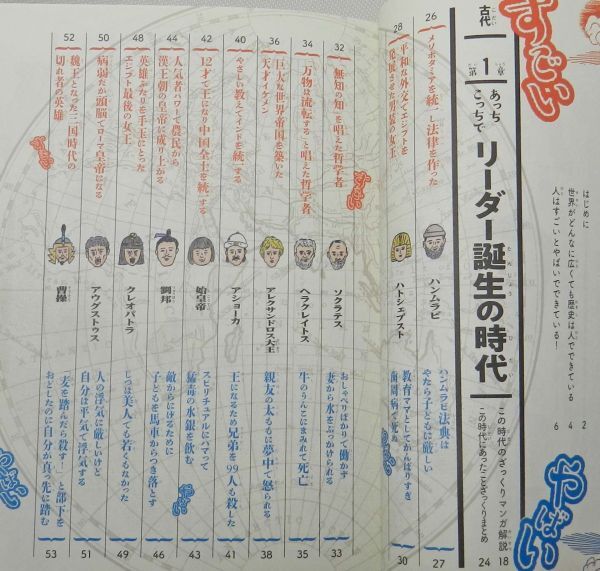 すごい
はじめに
世界がどんなに広くても歴史は人でできている
人はすごいとやばいでできている！
2
4
6
やばい
古代
第1章
あっち
こっちで
リーダー誕生の時代
この時代のざっくりマンガ解説
18
この時代にあったことざっくりまとめ
24
26
メソポタミアを統一し法律を作った
ハンムラビ
ハンムラビ法典は
やたら子どもに厳しい
27
28
平和な外交でエジプトを
発展させた男装の女王
ハトシェプスト
教育ママとしてがんばりすぎ
歯周病で死ぬ
30
32
「無知の知」を唱えた哲学者
ソクラテス
おしゃべりばかりで働かず
妻から水をぶっかけられる
33
34
「万物は流転する」と唱えた哲学者
ヘラクレイトス
牛のうんこにまみれて死亡
35
36
巨大な世界帝国を築いた
天才イケメン
アレクサンドロス大王
親友の太ももに夢中で怒られる
38
40
やさしい教えでインドを統一する
アショーカ
王になるため兄弟を99人も殺した
41
42
12才で王になり中国全土を統一する
始皇帝
スピリチュアルにハマって
猛毒の水銀を飲む
43
44
人気者パワーで農民から
漢王朝の皇帝に成り上がる
劉邦
敵からにげるために
子どもを馬車からつき落とす
46
48
英雄ふたりを手玉にとった
エジプト最後の女王
クレオパトラ
じつは美人でも若くもなかった
49
50
病弱だが頭脳でローマ皇帝になる
アウグストゥス
人の浮気に厳しいけど
自分は平気で浮気する
51
52
魏王となった三国時代の
切れ者の英雄
曹操
「麦を踏んだら殺す！」と部下を
おどしたのに自分が真っ先に踏む
53
すごい
すごい
やばい
やばい